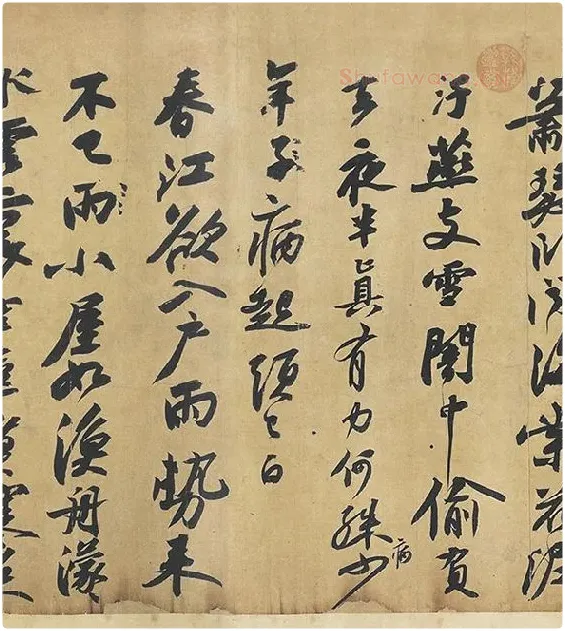 蕭瑟臥聞海棠花泥
汙燕支雪闇中偷負
去夜半真有力何殊少
病
年子病起頭已白
春江欲入戶雨勢來
不已雨小屋如漁舟濛
水雲裏
Shufawang